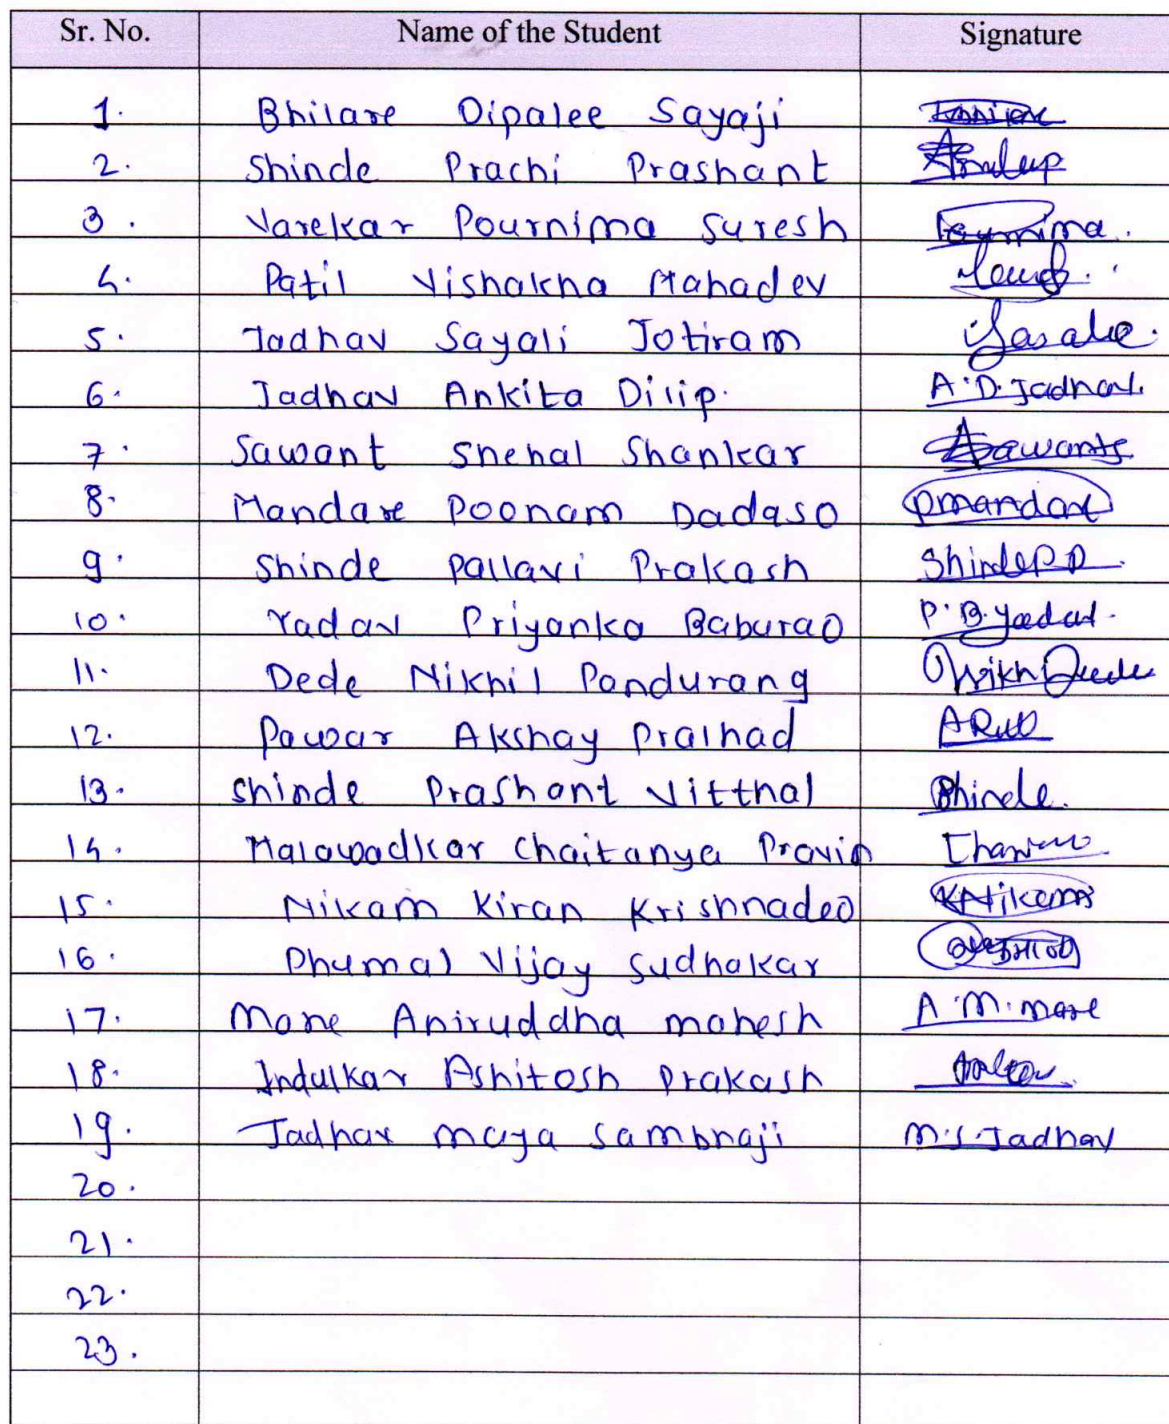 Sr. No. Name of the Student Signature
1. Bhilare Dipalee Sayaji
2. Shinde Prachi Prashant
3. Varekar Pournima Suresh Pournima.
4. Patil Vishakha Mahadev
5. Jadhav Sayali Jotiram
6. Jadhav Ankita Dilip. A.D.Jadhav.
7. Sawant Snehal Shankar Sawants
8. Mandare Poonam Dadaso pmandare
9. Shinde Pallavi Prakash Shinde P P
10. Yadav Priyanka Baburao P.B.Yadav.
11. Dede Nikhil Pandurang
12. Pawar Akshay Pralhad
13. Shinde Prashant Vitthal Shinde.
14. Malawadkar Chaitanya Pravin
15. Nikam Kiran Krishnadeo KNikam
16. Dhumal Vijay Sudhakar
17. Mane Aniruddha mahesh A.M.mane
18. Indulkar Ashitosh Prakash
19. Jadhav maya sambhaji M.S.Jadhav
20.
21.
22.
23.